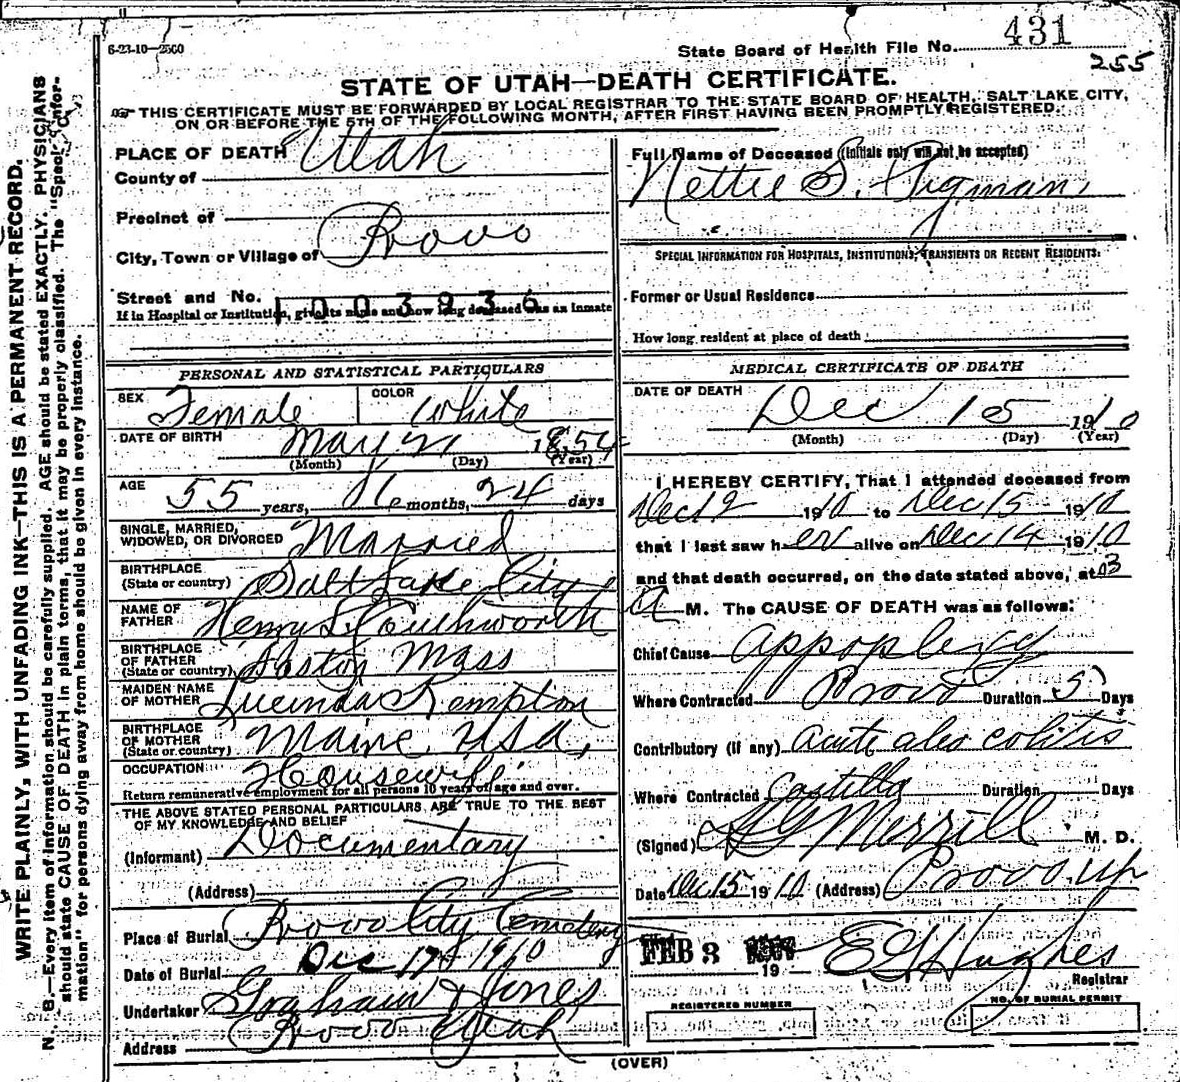 6-23-10—2500
State Board of Health File No. 431
255
STATE OF UTAH—DEATH CERTIFICATE.
THIS CERTIFICATE MUST BE FORWARDED BY LOCAL REGISTRAR TO THE STATE BOARD OF HEALTH, SALT LAKE CITY,
ON OR BEFORE THE 5TH OF THE FOLLOWING MONTH, AFTER FIRST HAVING BEEN PROMPTLY REGISTERED.
PLACE OF DEATH
County of Utah
Precinct of
City, Town or Village of Provo
Street and No. 1003936
If in Hospital or Institution, give its name and how long deceased was an inmate
PERSONAL AND STATISTICAL PARTICULARS
SEX Female COLOR White
DATE OF BIRTH May 21 1854
(Month) (Day) (Year)
AGE 55 years, 6 months, 24 days
SINGLE, MARRIED,
WIDOWED, OR DIVORCED Married
BIRTHPLACE
(State or country) Salt Lake City
NAME OF
FATHER Henry L Southworth
BIRTHPLACE
OF FATHER
(State or country) Boston Mass
MAIDEN NAME
OF MOTHER Lucinda Kempton
BIRTHPLACE
OF MOTHER
(State or country) Maine, USA,
OCCUPATION Housewife
Return remunerative employment for all persons 10 years of age and over.
THE ABOVE STATED PERSONAL PARTICULARS ARE TRUE TO THE BEST
OF MY KNOWLEDGE AND BELIEF
(Informant) Documentary
(Address)
Place of Burial Provo City Cemetery
Date of Burial Dec 17 1910
Undertaker Graham & Jones
Address Provo Utah
Full Name of Deceased (Initials only will not be accepted)
Nettie S. Pigman,
SPECIAL INFORMATION FOR HOSPITALS, INSTITUTIONS, TRANSIENTS OR RECENT RESIDENTS:
Former or Usual Residence
How long resident at place of death
MEDICAL CERTIFICATE OF DEATH
DATE OF DEATH Dec 15 1910
(Month) (Day) (Year)
I HEREBY CERTIFY, That I attended deceased from
Dec 12 1910 to Dec 15 1910
that I last saw her alive on Dec 14 1910
and that death occurred, on the date stated above, at 3
a M. The CAUSE OF DEATH was as follows:
Chief Cause appoplexy
Where Contracted Provo Duration 5 Days
Contributory (if any) acute colitis
Where Contracted Castilla Duration Days
(Signed) Merrill M. D.
Date Dec 15 1910 (Address) Provo
FEB 3 19
E G Hughes
Registrar
REGISTERED NUMBER
NO. OF BURIAL PERMIT
(OVER)
WRITE PLAINLY, WITH UNFADING INK—THIS IS A PERMANENT RECORD.
N. B.—Every item of information should be carefully supplied. AGE should be stated EXACTLY. PHYSICIANS
should state CAUSE OF DEATH in plain terms, that it may be properly classified. The "Special Infor-
mation" for persons dying away from home should be given in every instance.